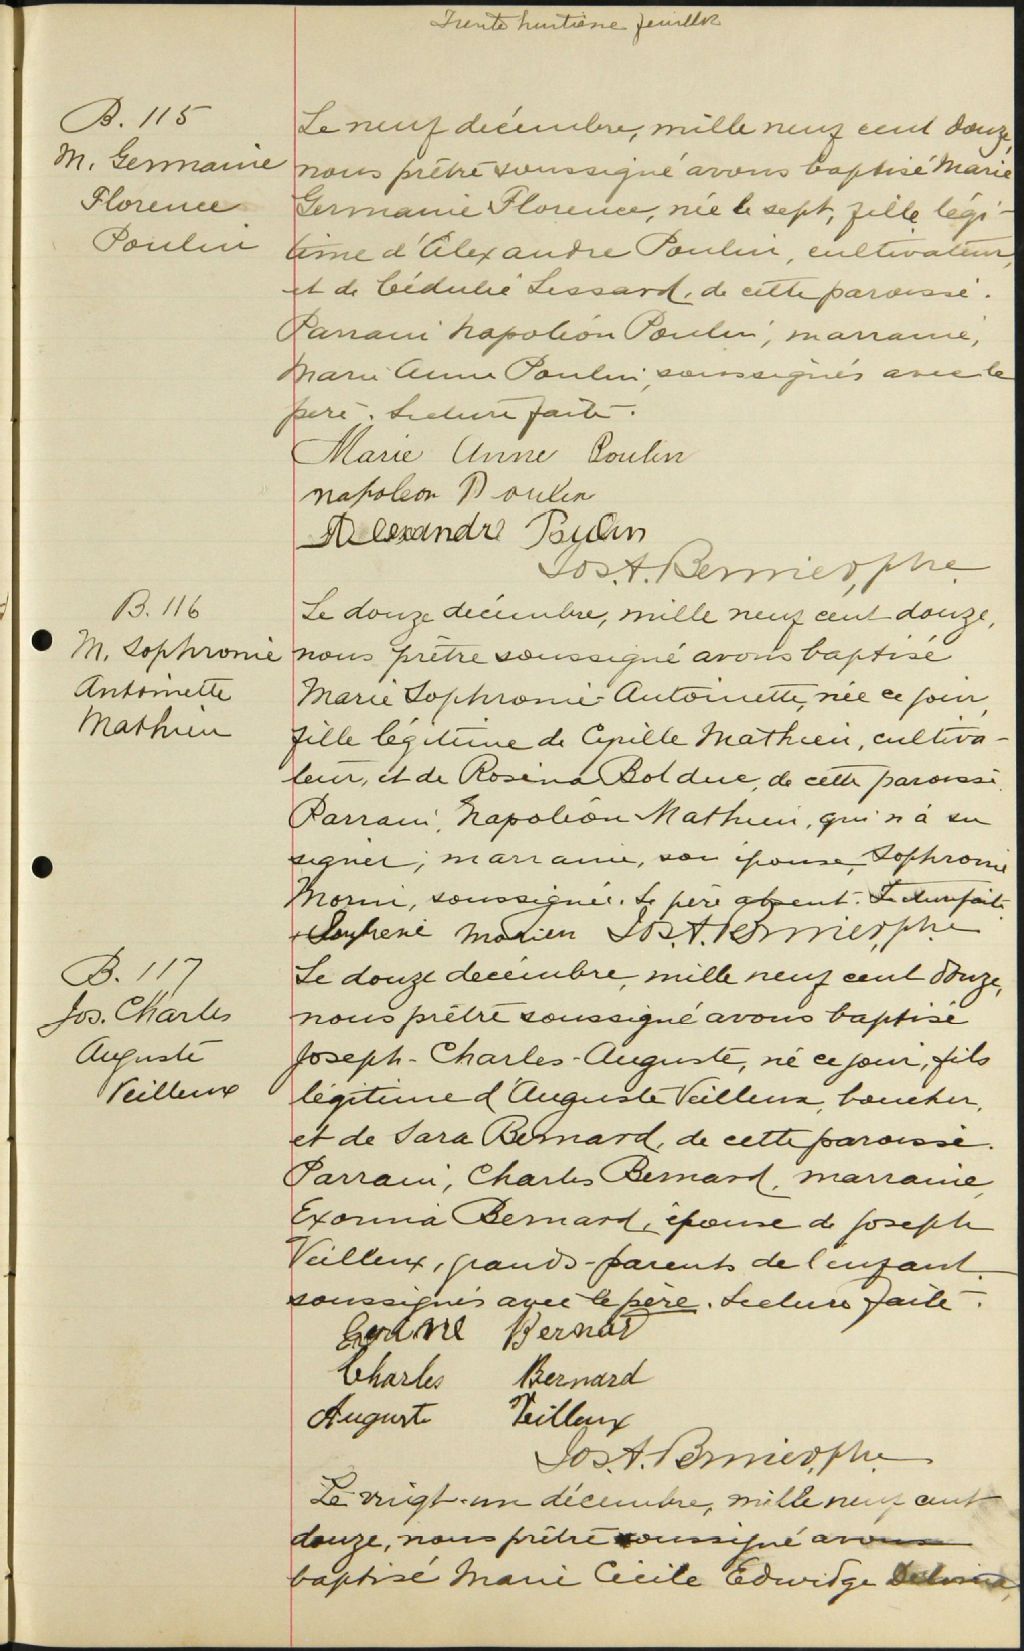 Trente huitième feuillet
B. 115
M. Germaine
Florence
Poulin
Le neuf décembre, mille neuf cent douze,
nous prêtre soussigné avons baptisé Marie
Germaine Florence, née le sept, fille légi-
time d'Alexandre Poulin, cultivateur,
et de Cédulie Lessard, de cette paroisse.
Parrain Napoléon Poulin, marraine,
Marie Anne Poulin, soussignés avec le
père. Lecture faite.
Marie Anne Poulin
napoleon Poulin
Alexandre Poulin
Jos. A. Bernier, ptre
B. 116
M. Sophronie
Antoinette
Mathieu
Le douze décembre, mille neuf cent douze,
nous prêtre soussigné avons baptisé
Marie Sophronie Antoinette, née ce jour,
fille légitime de Cyrille Mathieu, cultiva-
teur, et de Rosina Bolduc, de cette paroisse.
Parrain, Napoléon Mathieu, qui n'a su
signer; marraine, son épouse, Sophronie
Morin, soussignée. Le père absent. Lecture faite
morien Jos. A. Bernier, ptre
B. 117
Jos. Charles
Auguste
Veilleux
Le douze decémbre, mille neuf cent douze,
nous prêtre soussigné avons baptisé
Joseph-Charles-Auguste, né ce jour, fils
légitime d'Auguste Veilleux, boucher,
et de Sara Bernard, de cette paroisse.
Parrain, Charles Bernard, marraine,
Exorina Bernard, épouse de Joseph
Veilleux, grands-parents de l'enfant
soussignés avec le père. Lecture faite.
Bernard
Charles Bernard
Auguste Veilleux
Jos. A. Bernier, ptre
Le vingt-un décembre, mille neuf cent
douze, nous prêtre soussigné avons
baptisé Marie Cécile Edwidge